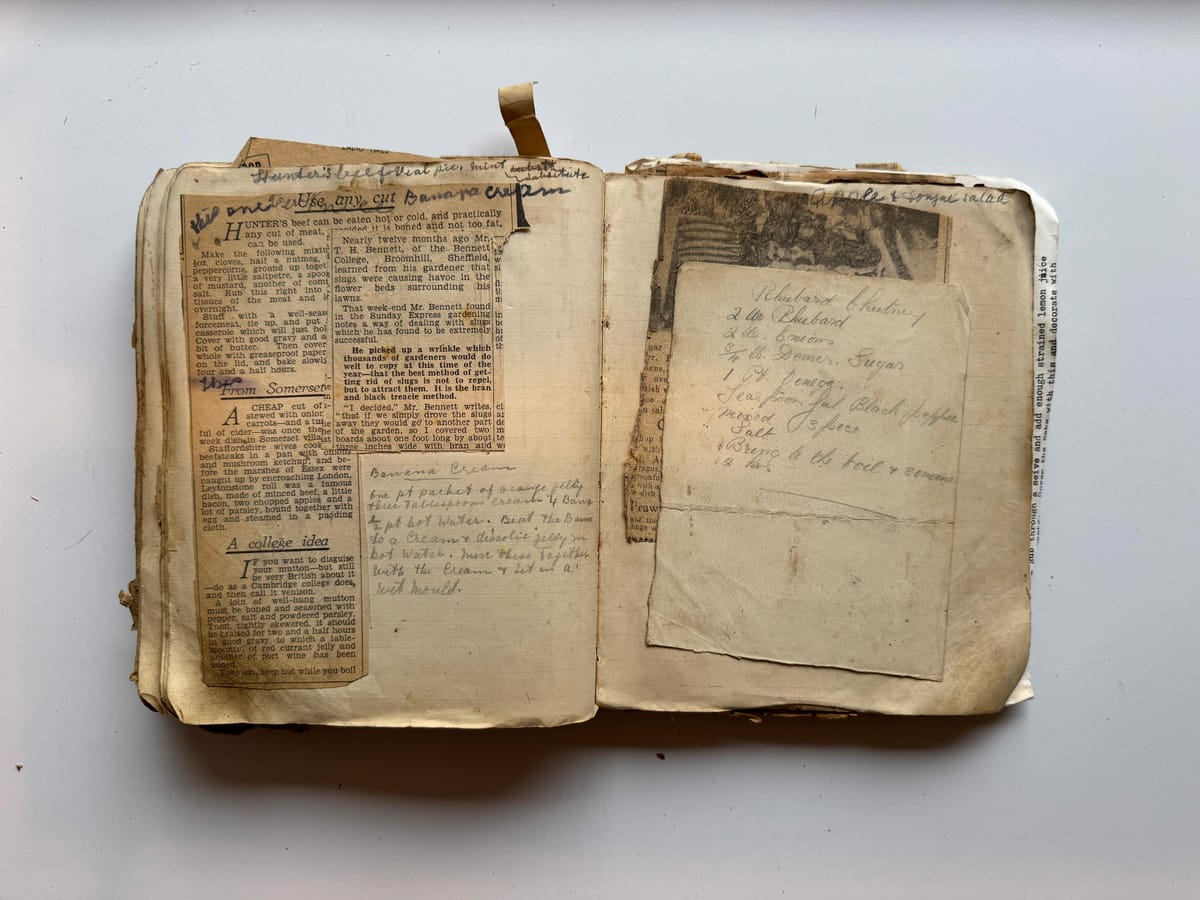 Hunter's beef & Veal pie. mint substitute
Use any cut Banana Cream
HUNTER'S beef can be eaten hot or cold, and practically
any cut of meat, provided it is boned and not too fat,
can be used.
Make the following
oz. cloves, half a nutmeg,
peppercorns, ground up
a very little saltpetre, a
of mustard, another of
salt. Rub this right into
tissues of the meat and
overnight.
Stuff with a
forcemeat, tie up, and put
casserole which will just
Cover with good gravy and a
bit of butter. Then cover
whole with greaseproof paper
on the lid, and bake slowly
four and a half hours.
From Somerset
A CHEAP cut of
stewed with onion
carrots—and a
ful of cider—was once the
week dish in Somerset
Staffordshire wives cook
beefsteaks in a pan with onions
and mushroom ketchup, and be-
fore the marshes of Essex were
caught up by encroaching London,
Leytonstone roll was a famous
dish, made of minced beef, a little
bacon, two chopped apples and a
lot of parsley, bound together with
egg and steamed in a pudding
cloth.
A college idea
IF you want to disguise
your mutton—but still
be very British about it
—do as a Cambridge college does,
and then call it venison.
A join of well-hung mutton
must be boned and seasoned with
pepper, salt and powdered parsley.
Then, tightly skewered, it should
be braised for two and a half hours
in good gravy, to which a table-
spoonful of red currant jelly and
another of port wine has been
added.
Take out, keep hot while you boil
Nearly twelve months ago Mr.
T. H. Bennett, of the Bennett
College, Broomhill, Sheffield,
learned from his gardener that
slugs were causing havoc in the
flower beds surrounding his
lawns.
That week-end Mr. Bennett found
in the Sunday Express gardening
notes a way of dealing with slugs
which he has found to be extremely
successful.
He picked up a wrinkle which
thousands of gardeners would do
well to copy at this time of the
year—that the best method of get-
ting rid of slugs is not to repel,
but to attract them. It is the bran
and black treacle method.
"I decided," Mr. Bennett writes,
"that if we simply drove the slugs
away they would go to another part
of the garden, so I covered two
boards about one foot long by about
three inches wide with bran and
Banana Cream
One pt packet of orange jelly
three tablespoons cream 4 Bans
½ pt hot water. Beat the Bans
to a Cream & dissolve jelly in
hot water. Mix these together
with the Cream & set in a
wet mould.
Apple & tongue salad
Rhubarb Chutney
2 lbs Rhubarb
2 lbs. Onions
¾ lb. Demer. Sugar
1 Pt. Vinegar
Teaspoonful Black pepper
mixed Spice
Salt
Bring to the boil & simmer
2 hrs
rub through a seive and add enough strained lemon juice
with this and decorate with